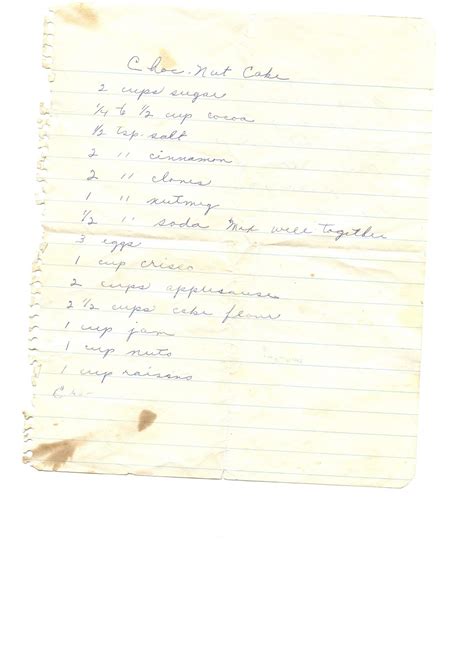 Choc. Nut Cake
2 cups sugar
1/4 to 1/2 cup cocoa
1/2 tsp. salt
2 " cinnamon
2 " cloves
1 " nutmeg
1/2 " soda Mix well together
3 eggs
1 cup crisco
2 cups applesause
2 1/2 cups cake flour
1 cup jam
1 cup nuts
1 cup raisons